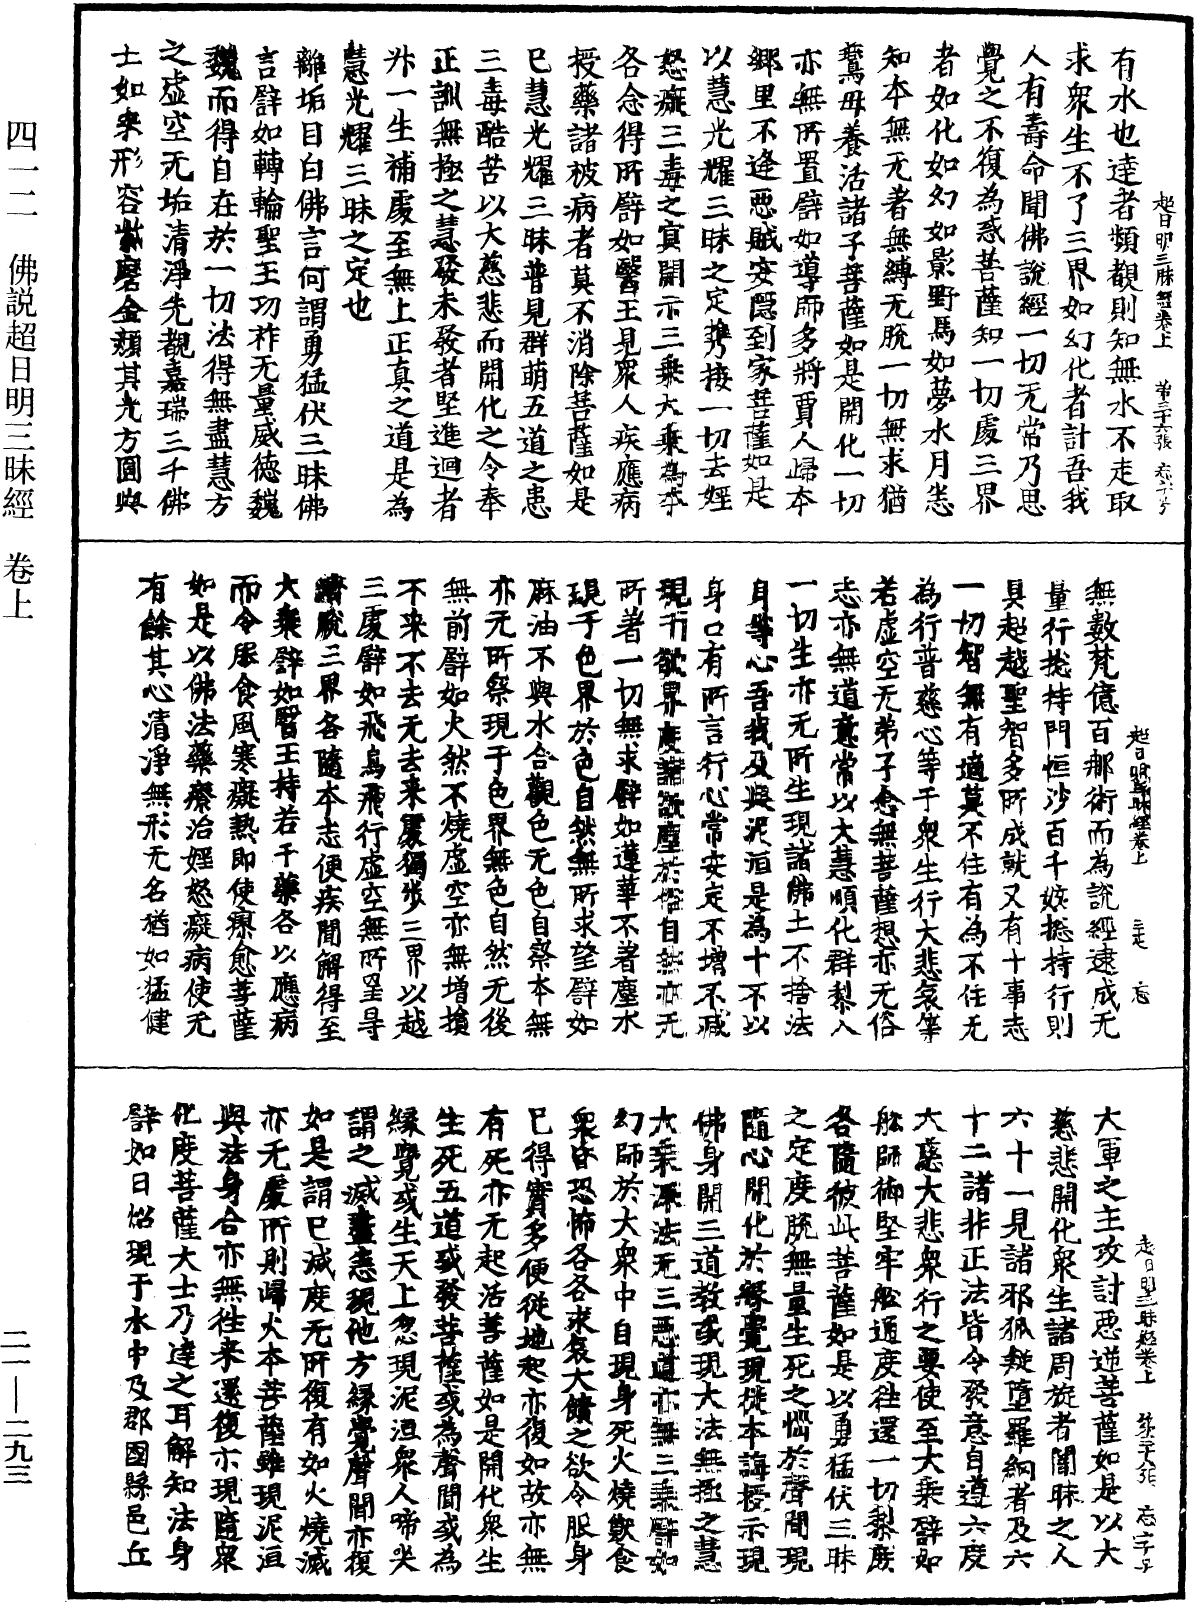 四一二　佛説超日明三昧經　卷上
二一—二九三
超日明三昧經卷上　第三十六張　忘字号
有水也達者頻觀則知無水不走取
求衆生不了三界如幻化者計吾我
人有壽命聞佛說經一切无常乃思
覺之不復為惑菩薩知一切處三界
者如化如幻如影野馬如夢水月悉
知本無无者無縛无脫一切無求猶
鴦母養活諸子菩薩如是開化一切
亦無所置譬如導師多將賈人歸本
鄉里不逢惡賊安隱到家菩薩如是
以慧光耀三昧之定攜接一切去婬
怒癡三毒之冥開示三乘大乘為本
各念得所譬如醫王見衆人疾應病
授藥諸被病者莫不消除菩薩如是
已慧光耀三昧普見群萌五道之患
三毒酷苦以大慈悲而開化之令奉
正訓無極之慧發未發者堅進迴者
外一生補處至無上正真之道是為
慧光耀三昧之定也
離垢目白佛言何謂勇猛伏三昧佛
言譬如轉輪聖王功祚无量威德巍
巍而得自在於一切法得無盡慧方
之虛空无垢清淨先覩嘉瑞三千佛
士如来形容紫磨金顏其光方圓與
超日明三昧經卷上　三定　忘
無數梵億百那術而為說經逮成无
量行捴持門恒沙百千姟捴持行則
具超越聖智多所成就又有十事志
一切智無有適莫不住有為不住无
為行普慈心等于衆生行大悲哀等
若虛空无弟子念無菩薩想亦无俗
志亦無道意常以大慧順化群黎入
一切生亦无所生現諸佛土不捨法
身等心吾我及與泥洹是為十不以
身口有所言行心常安定不增不減
現于欲界度諸欲塵於俗自然亦无
所著一切無求譬如蓮華不著塵水
現于色界於色自然無所求望譬如
麻油不與水合觀色无色自察本無
亦无所祭現于色界無色自然无後
無前譬如火然不燒虛空亦無增損
不来不去无去来處獨步三界以越
三處譬如飛鳥飛行虛空無所罣导
濟脫三界各隨本志便疾聞解得至
大乘譬如醫王持若干藥各以應病
而令服食風寒癡熱即使療愈菩薩
如是以佛法藥療治婬怒癡病使无
有餘其心清淨無形无名猶如猛健
超日明三昧經卷上　第三十八張　忘字号
大軍之主攻討惡逆菩薩如是以大
慈悲開化衆生諸周旋者闇昧之人
六十一見諸邪狐疑墮羅網者及六
十二諸非正法皆令發意自遵六度
大慈大悲衆行之要使至大乘譬如
舩師御堅牢舩通度往還一切黎庶
各隨彼此菩薩如是以勇猛伏三昧
之定度脫無量生死之惱於聲聞現
隨心開化於緣覺現從本誨授示現
佛身開三道教或現大法無極之慧
大乘深法无三惡道亦無三乘譬如
幻師於大衆中自現身死火燒歎食
衆皆恐怖各各求哀大饋之欲令服身
已得寶多便從地起亦復如故亦無
有死亦无起活菩薩如是開化衆生
生死五道或發菩薩或為聲聞或為
緣覺或生天上忽現泥洹衆人啼哭
謂之滅盡悉現他方緣覺聲聞亦復
如是謂已滅度无所復有如火燒滅
亦无處所則歸火本菩薩雖現泥洹
與法身合亦無往来還復示現隨衆
化度菩薩大士乃達之耳解知法身
譬如日炤現于水中及郡國縣邑丘